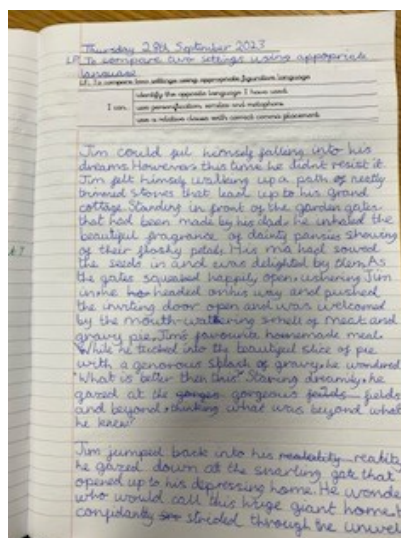 Thursday 28th September 2023
LF: To compare two settings using appropriate
language
LF: To compare two settings using appropriate figurative language
I can:
identify the opposite language I have used
use personification, similes and metaphors
use a relative clause with correct comma placement
Jim could ful himself falling into his
dreams. However this time he didnt resist it.
Jim felt himself walking up a path of neatly
trimmed stones that lead up to his grand
cottage. Standing in front of the garden gates
that had been made by his dad, he inhaled the
beautiful fragrance of dainty pansies showing
of their flashy petals. His ma had sowed
the seeds in and was delighted by them. As
the gates squeaked happily open, ushering Jim
in, he headed on his way and pushed
the inviting door open and was welcomed
by the mouth-watering smell of meat and
gravy pie, Jim's favourite homemade meal.
While he tucked into the beautiful slice of pie
with a generous splash of gravy, he wondered
"What is better then this" Staring dreamily, he
gazed at the gorges gorgeous feilds fields
and beyond, thinking what was beyond what
he knew.
Jim jumped back into his realitity reality
he gazed down at the snarling gate that
opened up to his depressing home. He wonde
who would call this huge giant home.
confidantly strided through the unwel